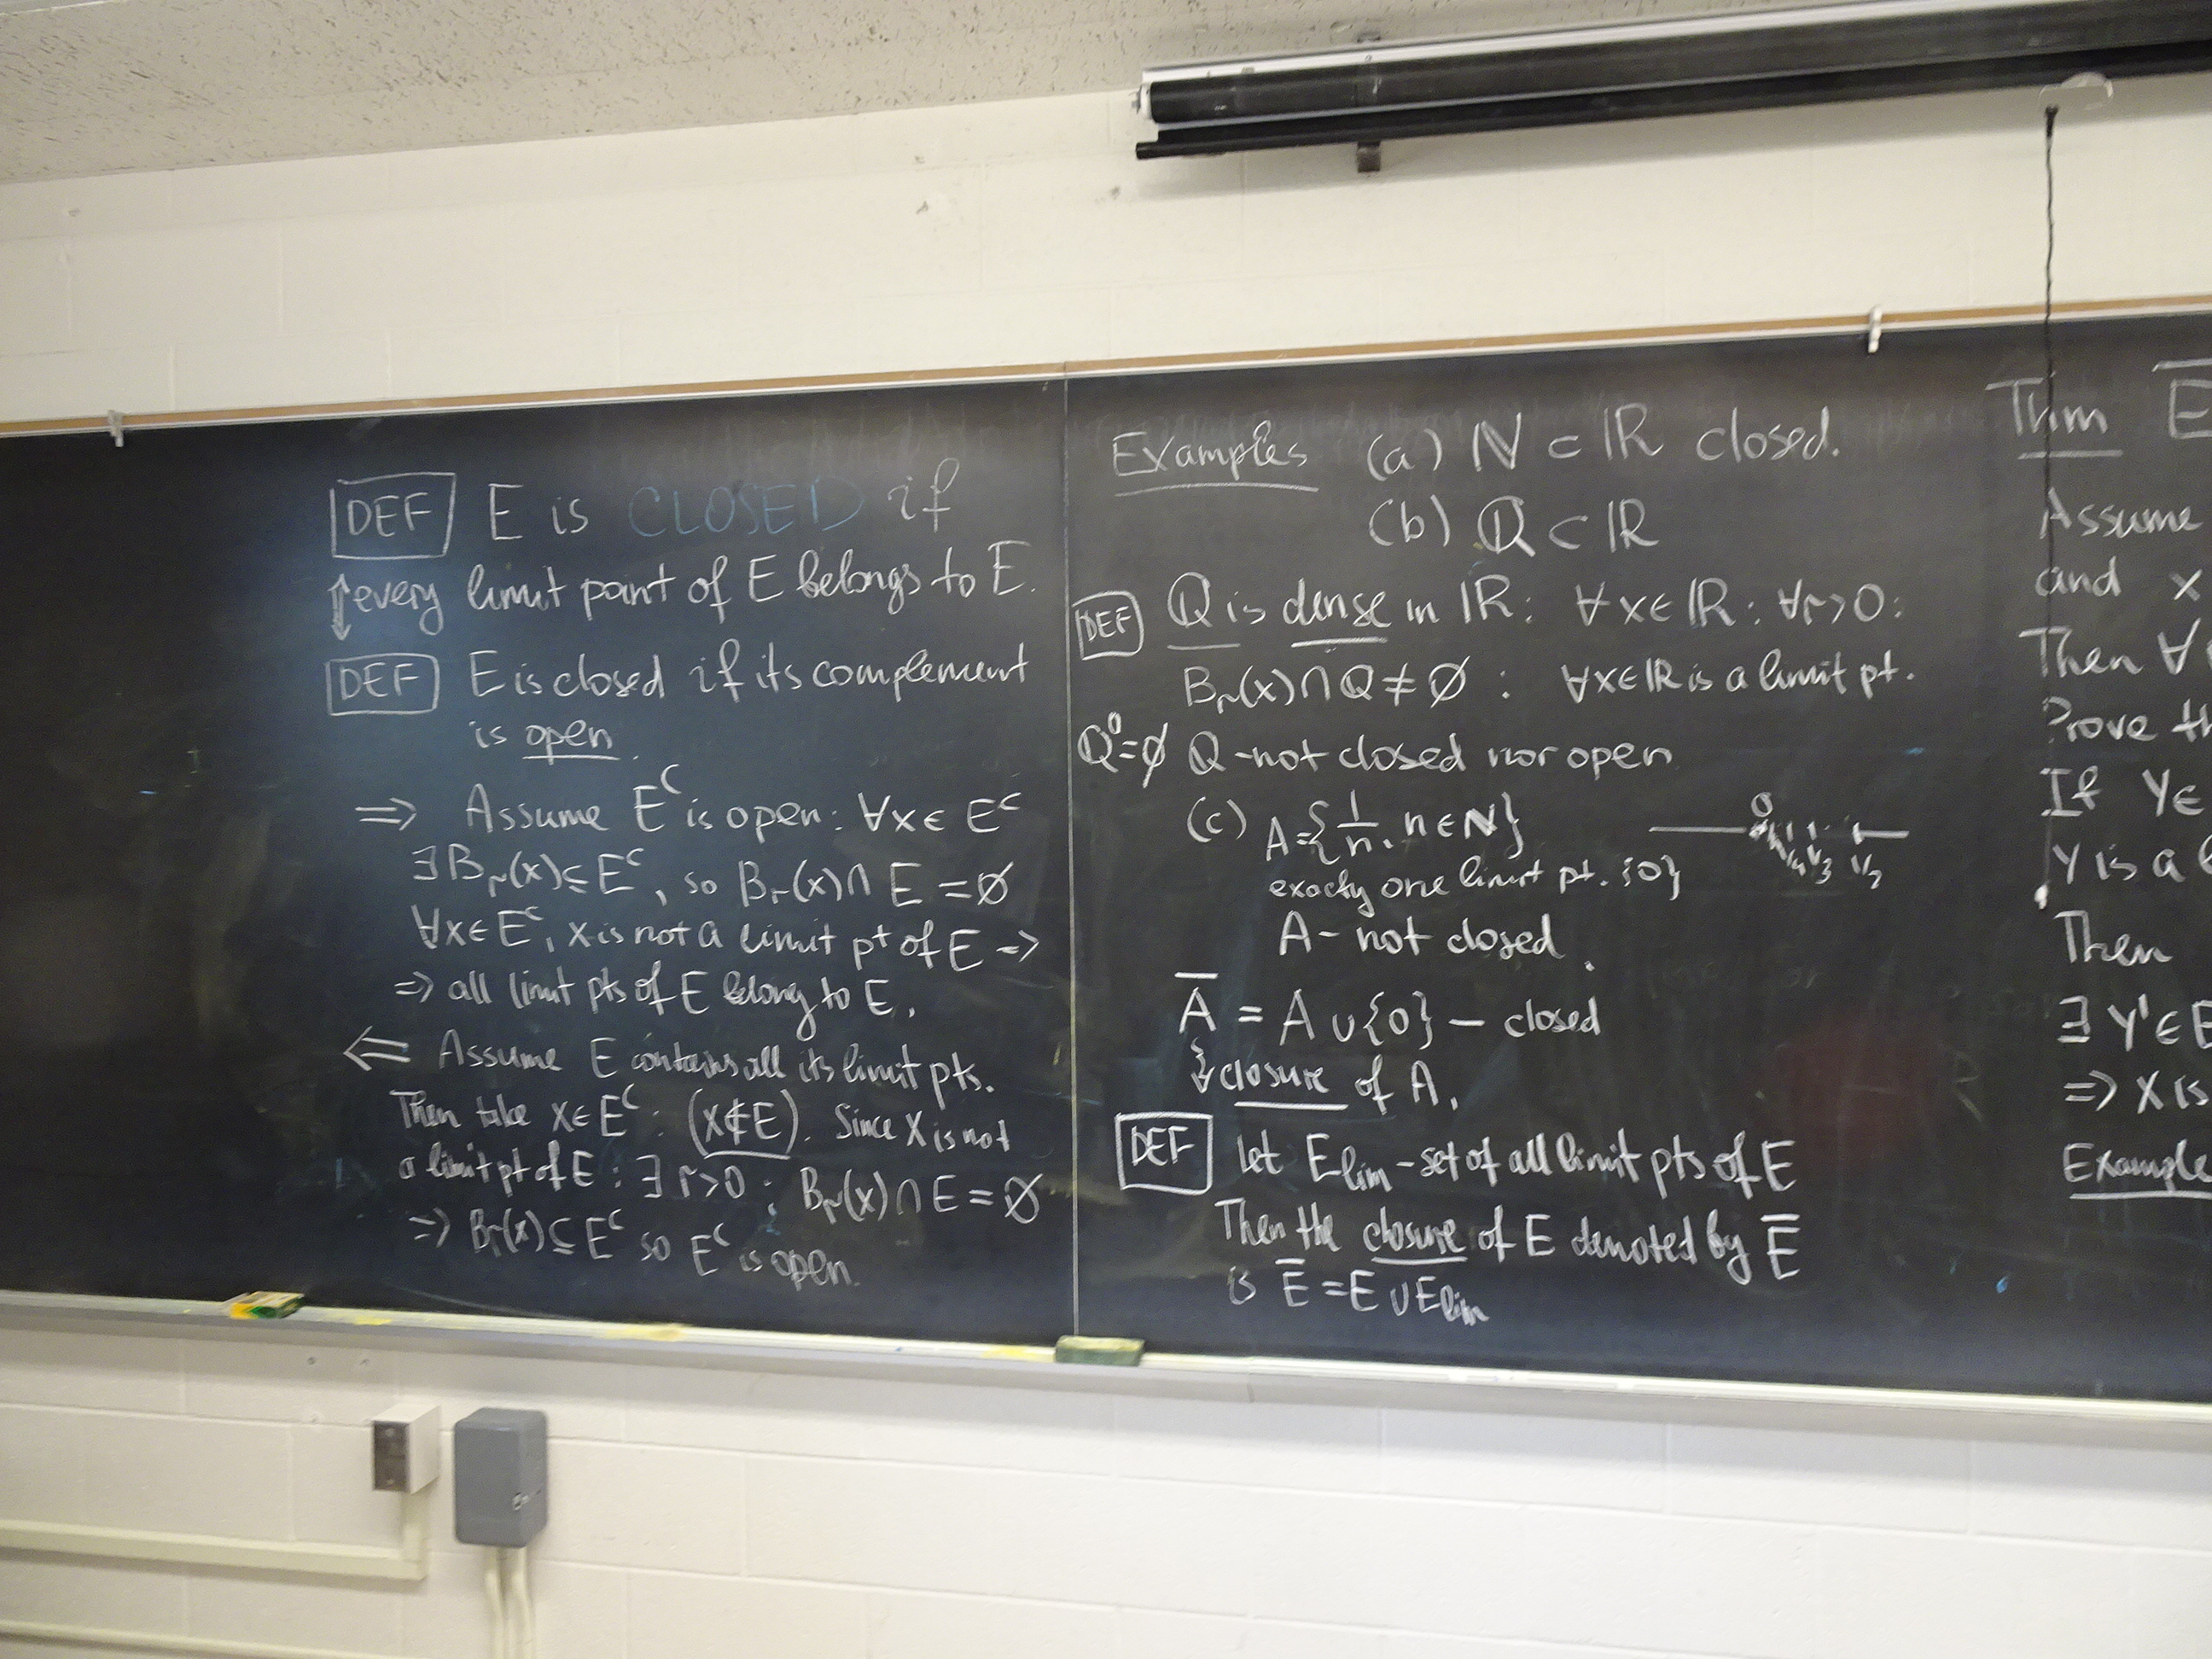 DEF E is CLOSED if
⇕ every limit point of E belongs to E.
DEF E is closed if its complement
is open.
⇒ Assume E^c is open: ∀x∈ E^c
∃ B_r(x) ⊆ E^c, so B_r(x) ∩ E = ∅
∀x∈ E^c, x is not a limit pt of E ⇒
⇒ all limit pts of E belong to E.
⇐ Assume E contains all its limit pts.
Then take x∈ E^c : (x∉E). Since x is not
a limit pt of E : ∃ r>0 : B_r(x) ∩ E = ∅
⇒ B_r(x) ⊆ E^c so E^c is open.
Examples (a) ℕ ⊂ ℝ closed.
(b) ℚ ⊂ ℝ
DEF ℚ is dense in ℝ: ∀x∈ℝ: ∀r>0:
B_r(x) ∩ ℚ ≠ ∅ : ∀x∈ℝ is a limit pt.
ℚ^0=∅ ℚ - not closed nor open
(c) A={1/n. n∈ℕ}
0 1/4 1/3 1/2
exacty one limit pt. {0}
A - not closed.
A̅ = A ∪ {0} - closed
closure of A.
DEF let E_lim - set of all limit pts of E
Then the closure of E denoted by E̅
is E̅ = E ∪ E_lim
Thm E
Assume
and x
Then ∀
Prove th
If Y∈
Y is a
Then
∃ Y'∈E
⇒ X is
Example